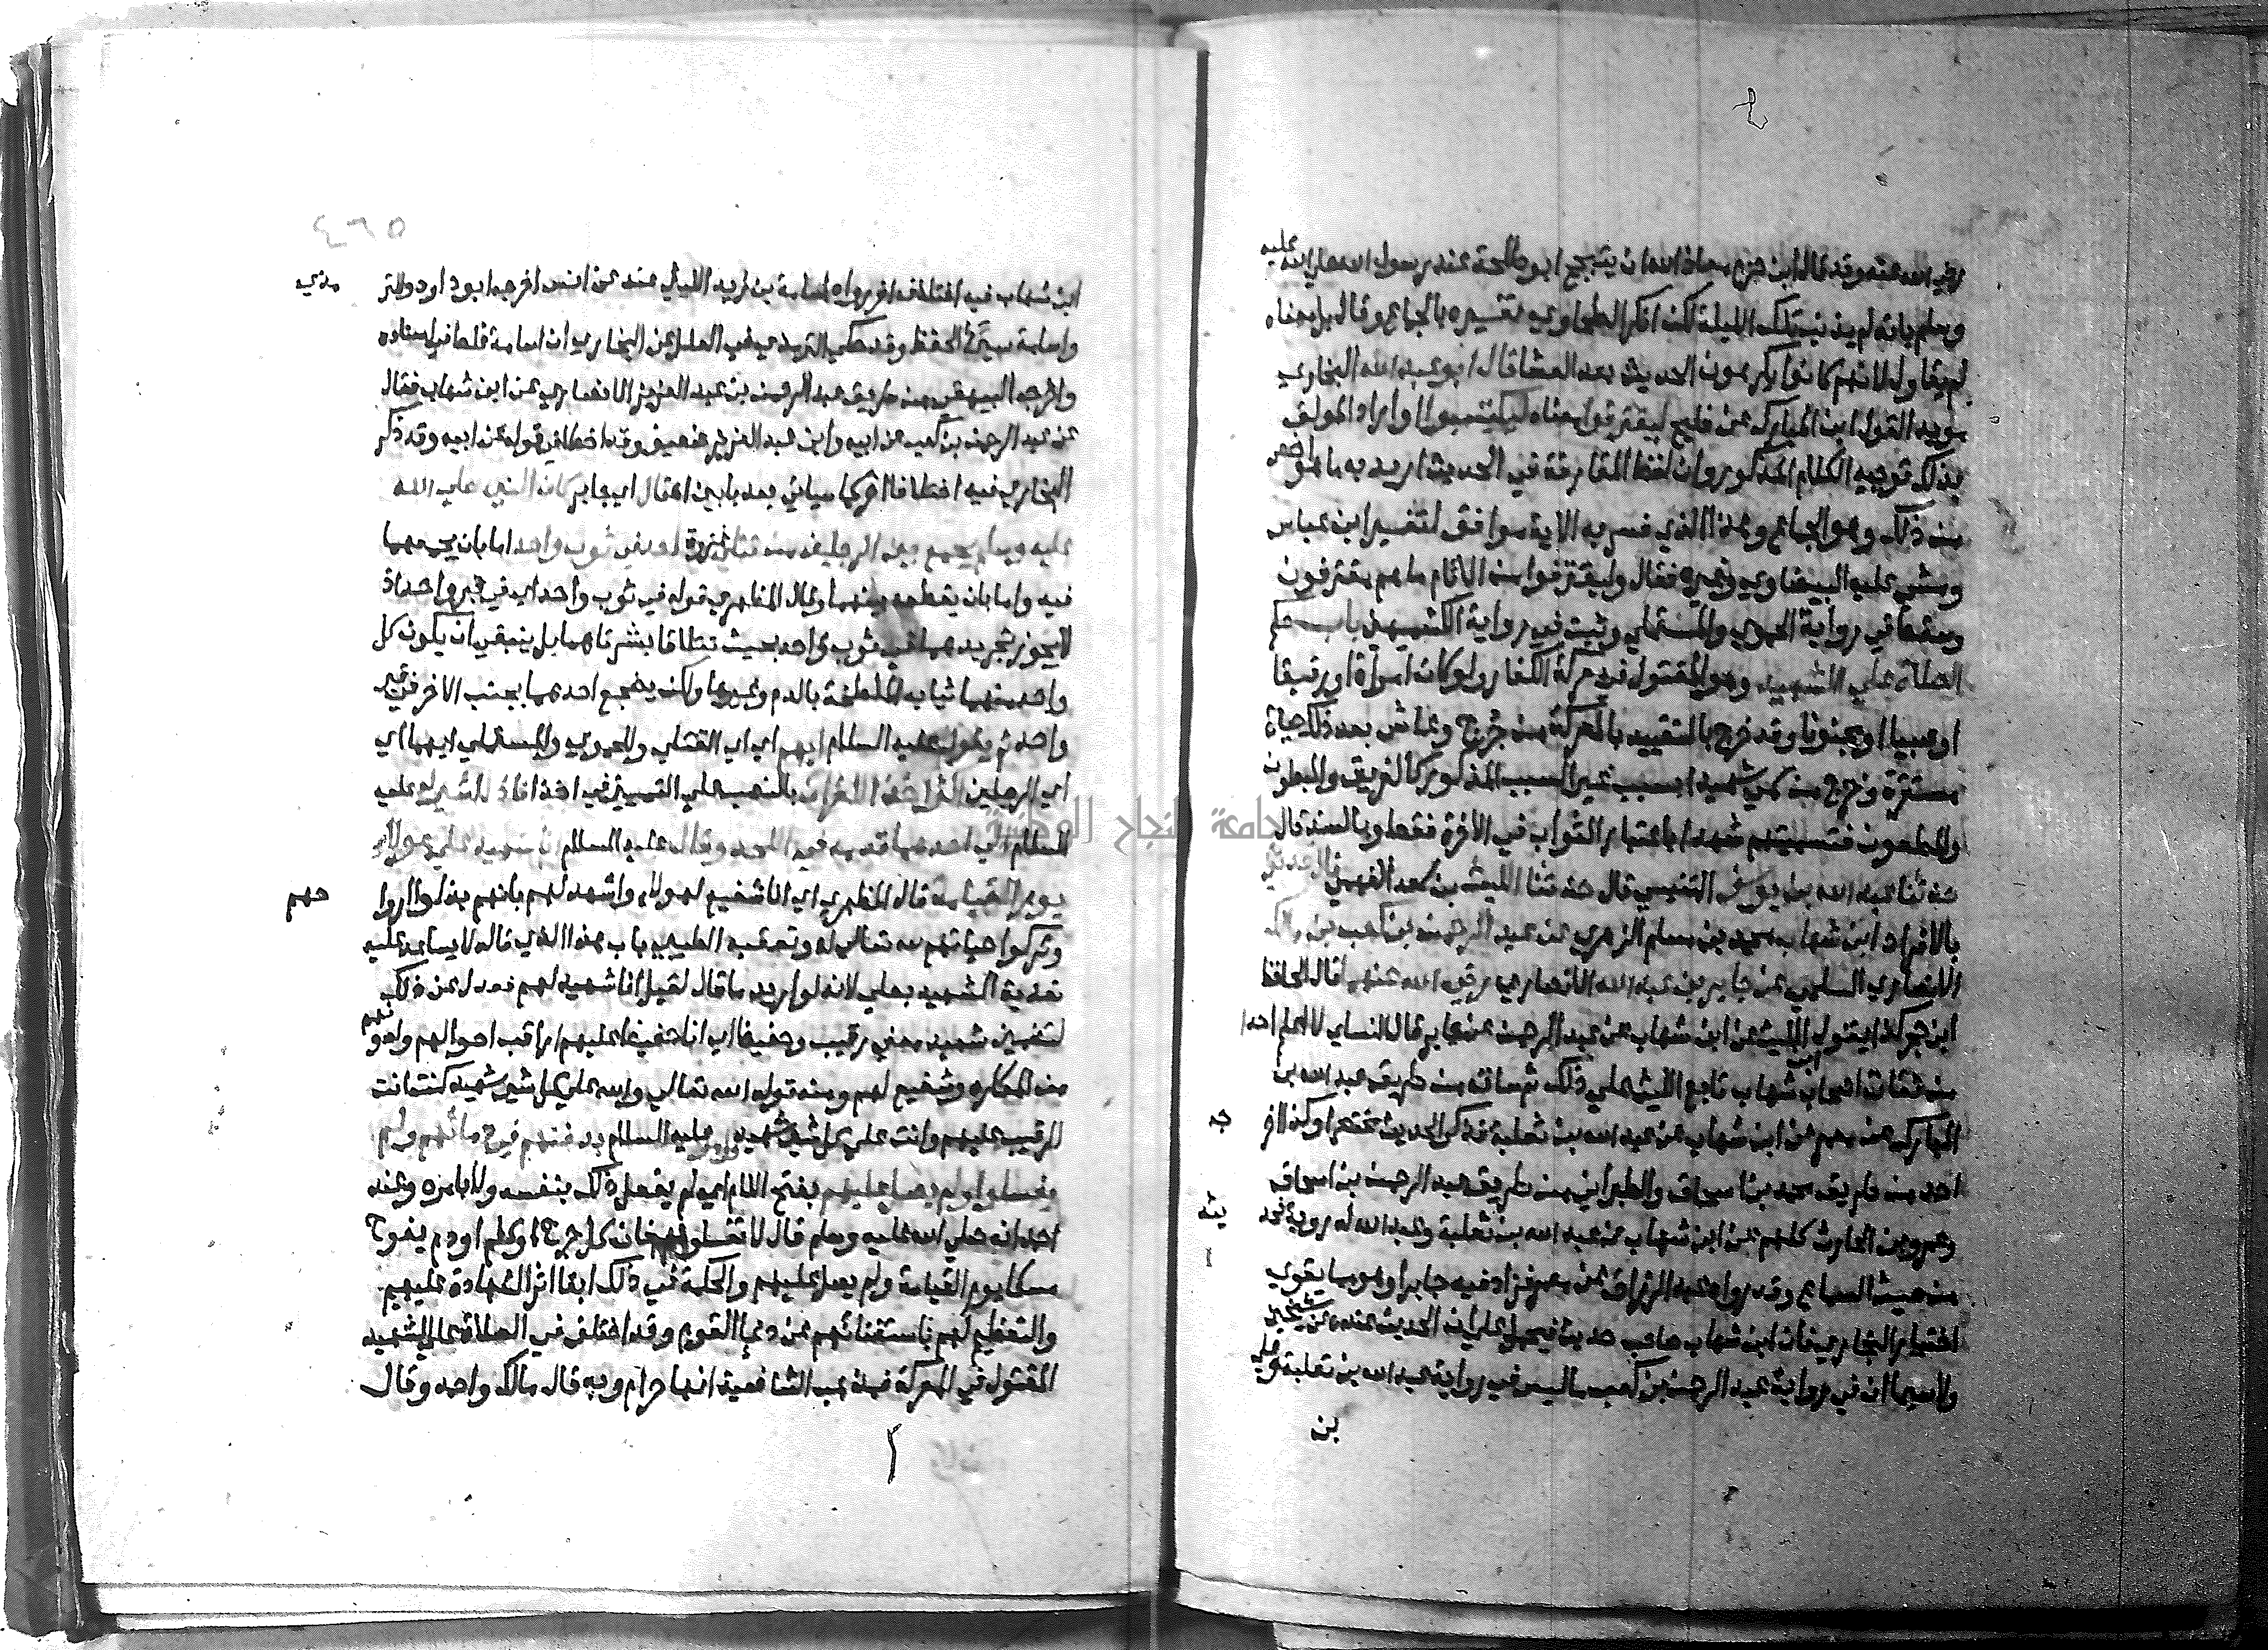 رضي الله عنه وقد قال ابن حزم معاذ الله ان يتبجح ابو طلحة عند رسول الله صلي الله عليه
وسلم بانه لم يذنب تلك الليلة لكن انكر الطحاوي تفسيره بالجماع وقال بل معناه
لم يقاول لانهم كانوا يكرهون الحديث بعد العشا قال ابو عبد الله البخاري
مويد القول ابن المبارك عن فليح ليقترفوا معناه ليكتسبوا واراد المولف
بذلك توجيه الكلام المذكور وان لفظ المقارفة في الحديث اريد به ما هو اخص
من ذلك وهو الجماع وهذا الذي فسر به الاية موافق لتفسير ابن عباس
ومشي عليه البيضاوي وغيره فقال وليقترفوا من الاثام ما هم مقترفون
وسقط في رواية الحموي والمستملي وثبت في رواية الكشميهني باب حكم
الصلاة علي الشهيد وهو المقتول في معركة الكفار ولو كان امراة او رقيقا
او صبيا او مجنونا وقد خرج بالتقييد بالمعركة من جرح وعاش بعد ذلك حياة
مستقرة وخرج من سمي شهيدا بسبب غير السبب المذكور كالغريق والمبطون
والمطعون فتسميتهم شهدا باعتبار الثواب في الاخرة فقط وبالسند قال
حدثنا عبد الله بن يوسف التنيسي قال حدثنا الليث بن سعد الفهمي قال حدثني
بالافراد ابن شهاب محمد بن مسلم الزهري عن عبد الرحمن بن كعب بن مالك
الانصاري السلمي عن جابر بن عبد الله الانصاري رضي الله عنهما قال الحافظ
ابن حجر كذا يقول الليث عن ابن شهاب عن عبد الرحمن عن جابر قال النساي لا اعلم احدا
من ثقات اصحاب ابن شهاب تابع الليث علي ذلك ثم ساقه من طريق عبد الله بن
المبارك عن معمر عن ابن شهاب عن عبد الله بن ثعلبة فذكر الحديث مختصرا وكذا اخرجه
احمد من طريق محمد بن اسحاق والطبراني من طريق عبد الرحمن بن اسحاق
وعمرو بن الحارث كلهم عن ابن شهاب عن عبد الله بن ثعلبة وعبد الله له روية فحديثه
من حيث السماع وقد رواه عبد الرزاق عن معمر فزاد فيه جابرا وهو مما يقوي
اختيار البخاري فان ابن شهاب صاحب حديث فيحمل علي ان الحديث عنده عن شيخين
ولا سيما ان في رواية عبد الرحمن بن كعب ما ليس في رواية عبد الله بن ثعلبة وعلي
بن
٤٦٥
ابن شهاب فيه اختلاف اخر رواه اسامة بن زيد الليثي عنه عن انس اخرجه ابو داود والترمذي
واسامة سيئ الحفظ وقد حكي الترمذي في العلل عن البخاري ان اسامة غلط في اسناده
واخرجه البيهقي من طريق عبد الرحمن بن عبد العزيز الانصاري عن ابن شهاب فقال
عن عبد الرحمن بن كعب عن ابيه وابن عبد العزيز ضعيف وقد اخطا في قوله عن ابيه وقد ذكر
البخاري فيه اختلافا اخر كما سياتي بعد بابين انه قال اي جابر كان النبي صلي الله
عليه وسلم يجمع بين الرجلين من قتلي غزوة احد في ثوب واحد اما بان يجمعهما
فيه واما بان يقطعه بينهما وقال المظهري قوله في ثوب واحد اي في قبر واحد اذ
لا يجوز تجريدهما في ثوب واحد بحيث تتلاقا بشرتاهما بل ينبغي ان يكون كل
واحد منهما ثيابه الملطخة بالدم وغيرها ولكن يضجع احدهما بجنب الاخر في قبر
واحد ثم يقول عليه السلام ايهم اي اي القتلي وللحموي والمستملي ايهما اي
اي الرجلين اكثر اخذا للقران بالنصب علي التمييز في اخذا فاذا اشير له عليه
السلام الي احدهما قدمه في اللحد وقال عليه السلام انا شهيد علي هولاء
يوم القيامة قال المظهري اي انا شفيع لهولاء واشهد لهم بانهم بذلوا ارواحهم
وتركوا حياتهم لله تعالي له وتعقبه الطيبي بان هذا الذي قاله لا يساعد عليه
تعدية الشهيد بعلي لانه لو اريد ما قال لقيل انا شهيد لهم فعدل عن ذلك
لتضمين شهيد معني رقيب وحفيظ اي انا حفيظ عليهم اراقب احوالهم واصونهم
من المكاره وشفيع لهم ومنه قوله الله تعالي والله علي كل شي شهيد كنت انت
الرقيب عليهم وانت علي كل شي شهيد وامر عليه السلام بدفنهم في دمائهم ولم
يغسلوا ولم يصل عليهم بفتح اللام اي لم يفعل ذلك بنفسه ولا بامره وعند
احمد انه صلي الله عليه وسلم قال لا تغسلوهم فان كل جرح او كلم او دم يفوح
مسكا يوم القيامة ولم يصل عليهم والحكمة في ذلك ابقا اثر الشهادة عليهم
والتعظيم لهم باستغنائهم عن دعا القوم وقد اختلف في الصلاة علي الشهيد
المقتول في المعركة فمذهب الشافعية انها حرام وبه قال مالك واحمد وقال
جامعة النجاح الوطنية